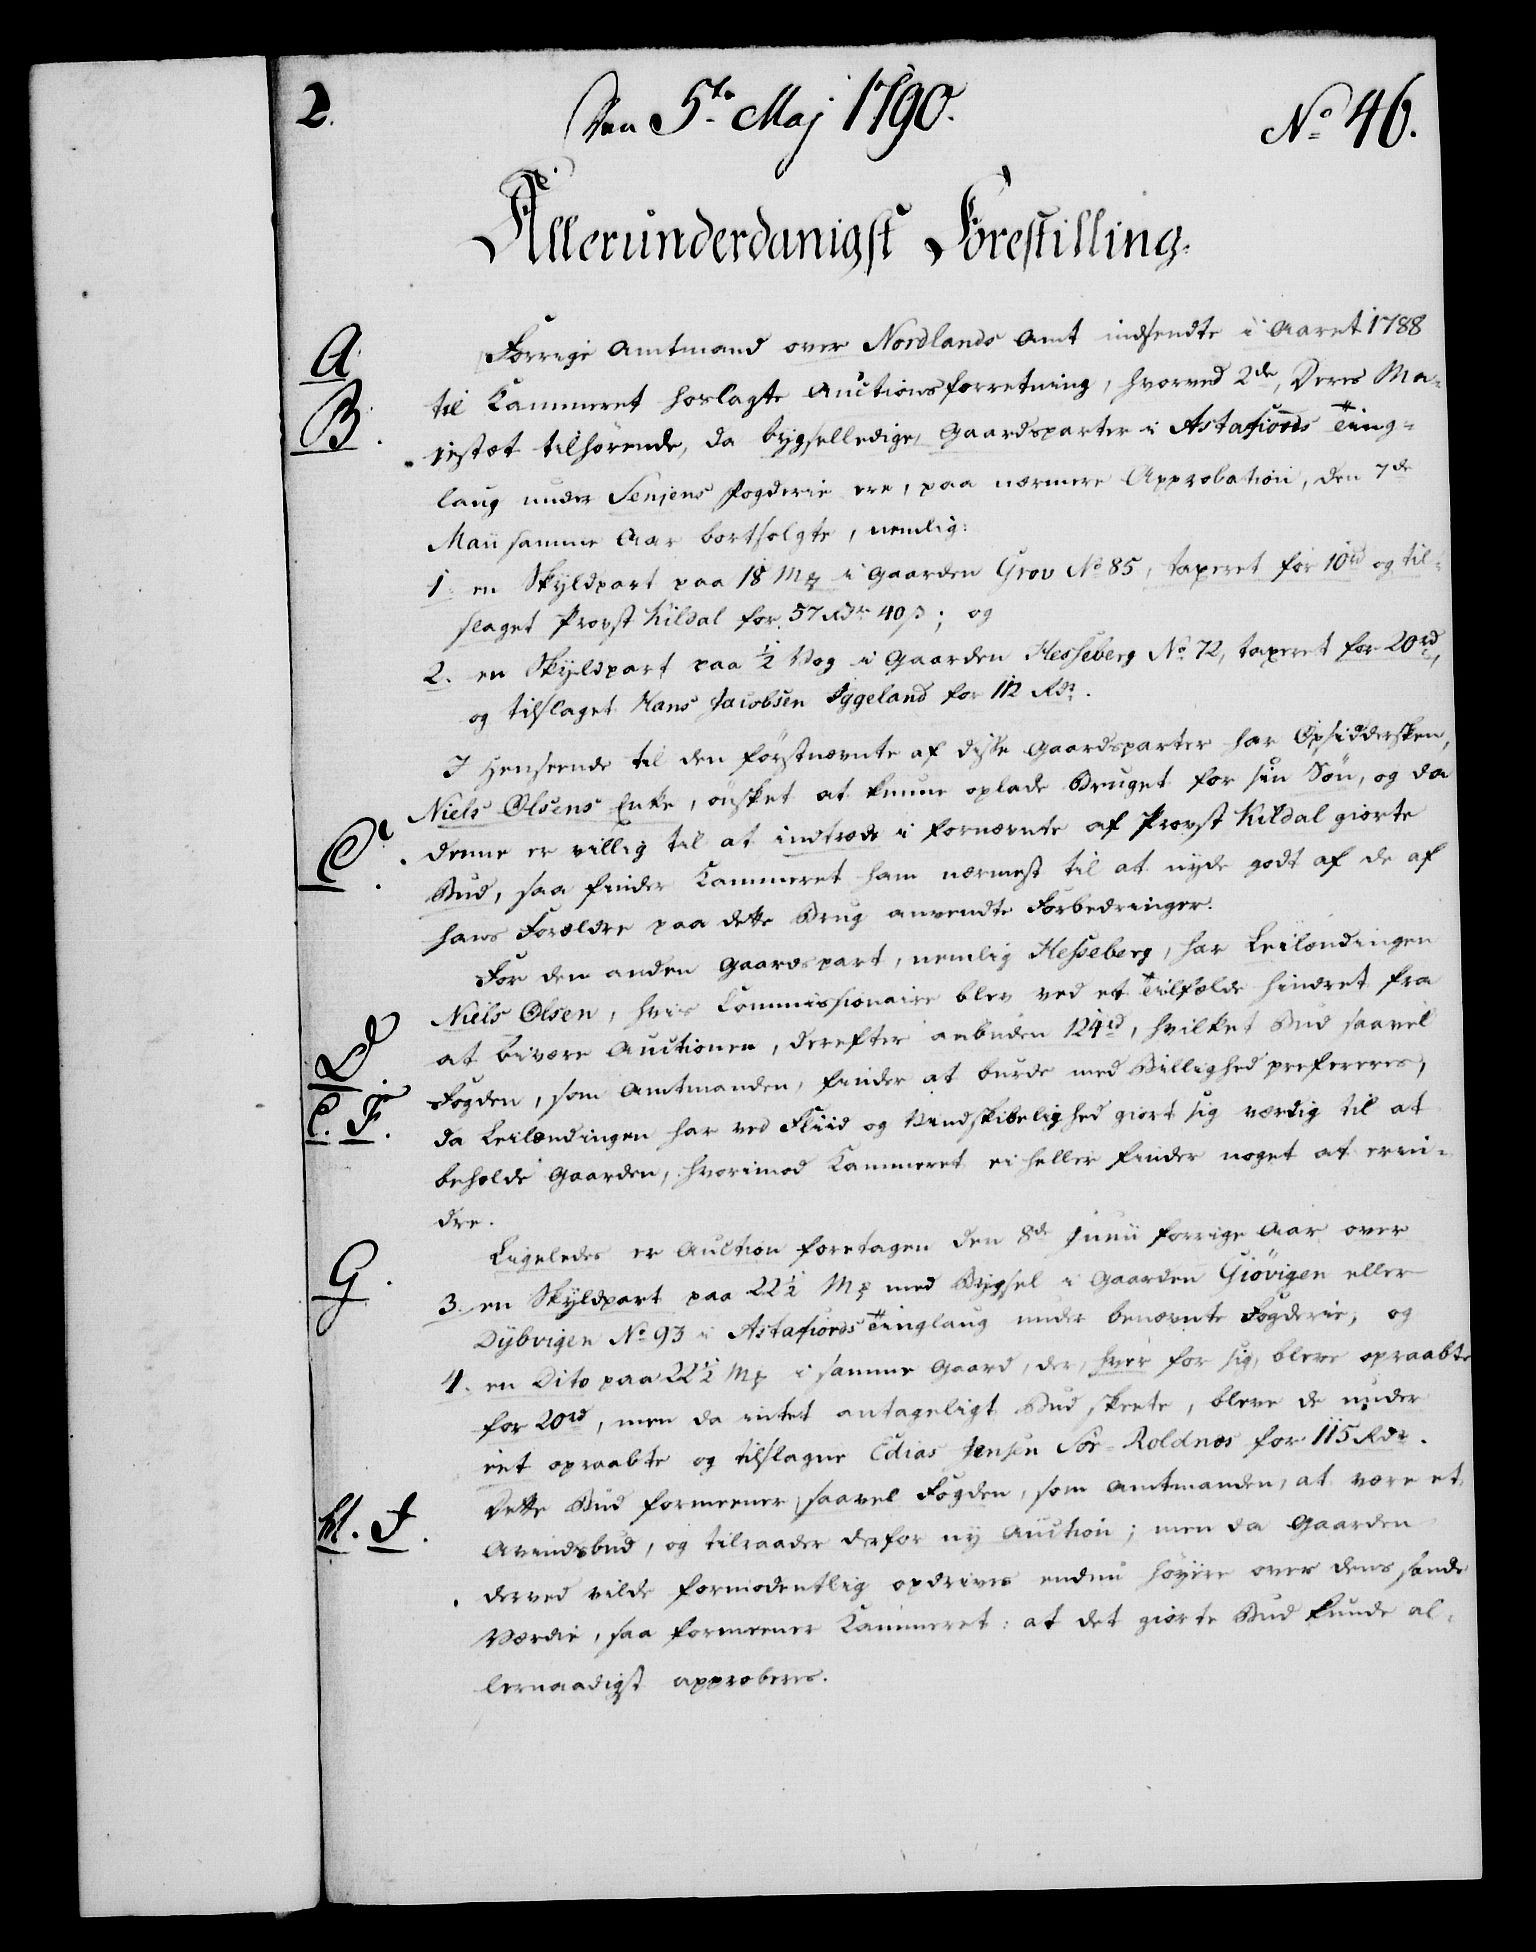 2.
Den 5te Maj 1790.
No 46.
Allerunderdanigst Forestilling.
A
Forrige Amtmand over Nordlands Amt indsendte i Aaret 1788
B.
til Kammeret hoslagte Auctionsforretning, hvorved 2de, Deres Ma-
jestæt tilhørende, da bygselledige, Gaardsparter i Astafiords Ting-
laug under Senjens Fogderie ere, paa nærmere Approbation, den 7de
Maii samme Aar bortsolgte, nemlig:
1. en Skyldpart paa 18 Mp i Gaarden Grov No 85, taxeret for 10rd og til-
slaget Provst Kildal for 57 Rdr 40 s; og
2. en Skyldpart paa ½ Vog i Gaarden Hesseberg No 72, taxeret for 20rd,
og tilslaget Hans Jacobsen Iggeland for 112 Rdr.
I Henseende til den førstnævnte af disse Gaardsparter har Opsiddersken,
Niels Olsens Enke, ønsket at kunne oplade Bruget for sin Søn, og da
C.
denne er villig til at indtræde i fornævnte af Provst Kildal giorte
Bud, saa finder Kammeret ham nærmest til at nyde godt af de af
hans Forældre paa dette Brug anvendte Forbedringer.
For den anden Gaardspart, nemlig Hesseberg, har Leilændingen
Niels Olsen, hvis Commissionaire blev ved et Tilfælde hindret fra
D
at bivære Auctionen, derefter anbuden 124rd, hvilket Bud saavel
Fogden, som Amtmanden, finder at burde med Billighed prefereres,
E. F.
da Leilændingen har ved Fliid og Vindskibelighed giort sig værdig til at
beholde Gaarden, hvorimod Kammeret ei heller finder noget at erin-
dre.
Ligeledes er Auction foretagen den 8de Junii forrige Aar over
G.
3. en Skyldpart paa 22½ Mp med Bygsel i Gaarden Giøvigen eller
Dybvigen No 93 i Astafiords Tinglaug under benævnte Fogderie, og
4. en Dito paa 22½ Mp i samme Gaard, der, hver for sig, bleve opraabte
for 20rd, men da intet antageligt Bud skeete, bleve de under
eet opraabte og tilslagne Edias Jensen Sør-Roldnæs for 115 Rdr.
H. I.
Dette Bud formeener, saavel Fogden, som Amtmanden, at være et
Avindsbud, og tilraader derfor ny Auction; men da Gaarden
derved vilde formodentlig opdrives endnu høyere over dens sande
Værdie, saa formeener Kammeret: at det giorte Bud kunde al-
lernaadigst approberes.